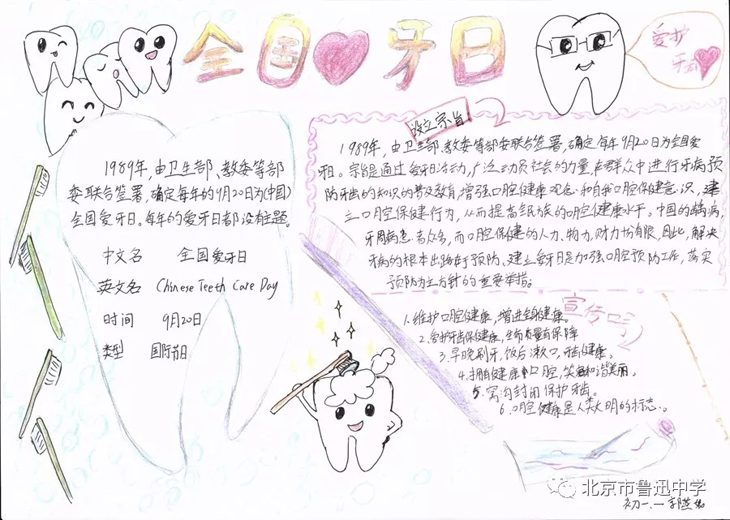 全国 牙日
爱护
牙齿
1989年,由卫生部、教委等部
委联合签署,确定每年的9月20日为(中国)
全国爱牙日。每年的爱牙日都设有主题。
中文名 全国爱牙日
英文名 Chinese Teeth Care Day
时间 9月20日
类型 国际节日
设立宗旨
1989年,由卫生部、教委等部委联合签署,确定每年9月20日为全国爱
牙日。宗旨是通过爱牙日活动,广泛动员社会的力量,在群众中进行牙病预
防牙齿的知识的普及教育,增强口腔健康观念和自我口腔保健意识,建
立口腔保健行为,从而提高全民族的口腔健康水平。中国的龋病,
牙周病患者众多,而口腔保健的人力、物力、财力均有限,因此,解决
牙病的根本出路在于预防、建立爱牙日是加强口腔预防工作,落实
预防为主方针的重要举措。
宣传口号
1.维护口腔健康,增进全身健康。
2.爱护牙齿保健康,生命质量有保障
3.早晚刷牙,饭后漱口,牙齿健康。
4.拥有健康口腔,笑融和谐美丽。
5.窝沟封闭保护牙齿。
6.口腔健康是人类文明的标志。
北京市鲁迅中学
初一.一